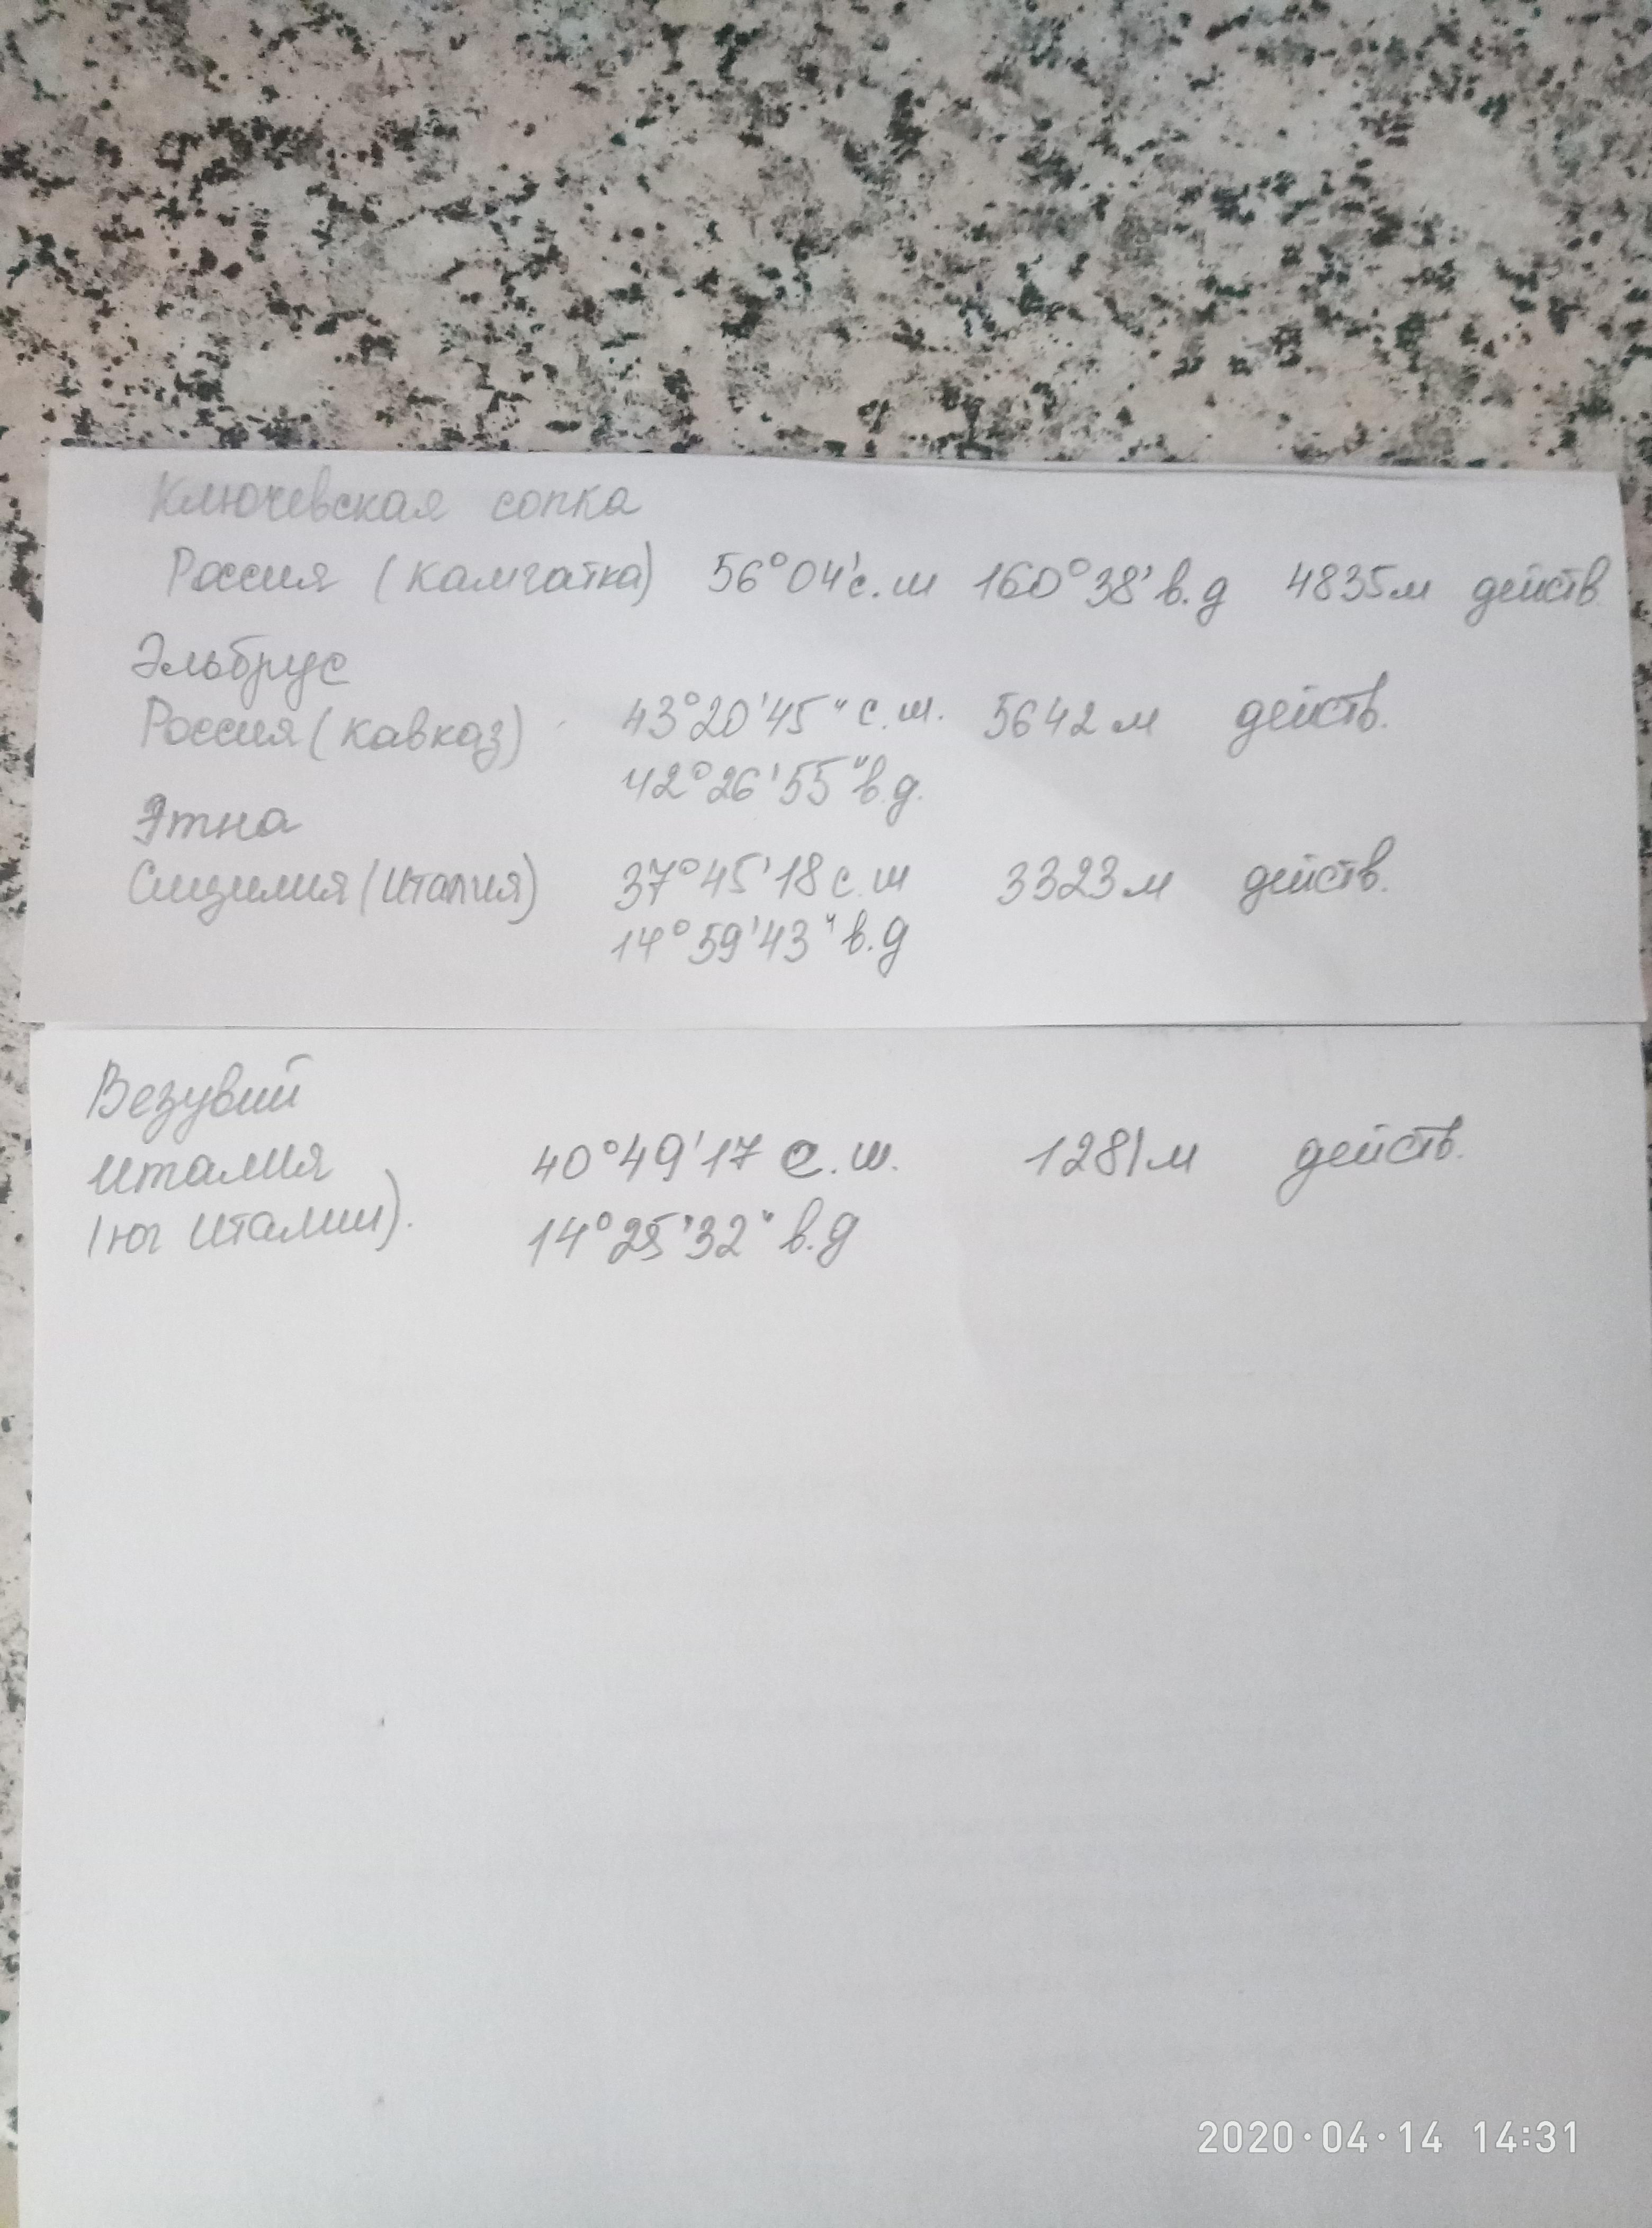 Ключевская сопка
Россия (Камчатка) 56°04'с.ш 160°38'в.д 4835м действ.
Эльбрус
Россия (Кавказ) 43°20'45"с.ш. 5642м действ.
42°26'55"в.д.
Этна
Сицилия (Италия) 37°45'18с.ш 3323м действ.
14°59'43"в.д
Везувий
Италия 40°49'17 с.ш. 1281м действ.
(юг Италии). 14°25'32"в.д
2020·04·14 14:31